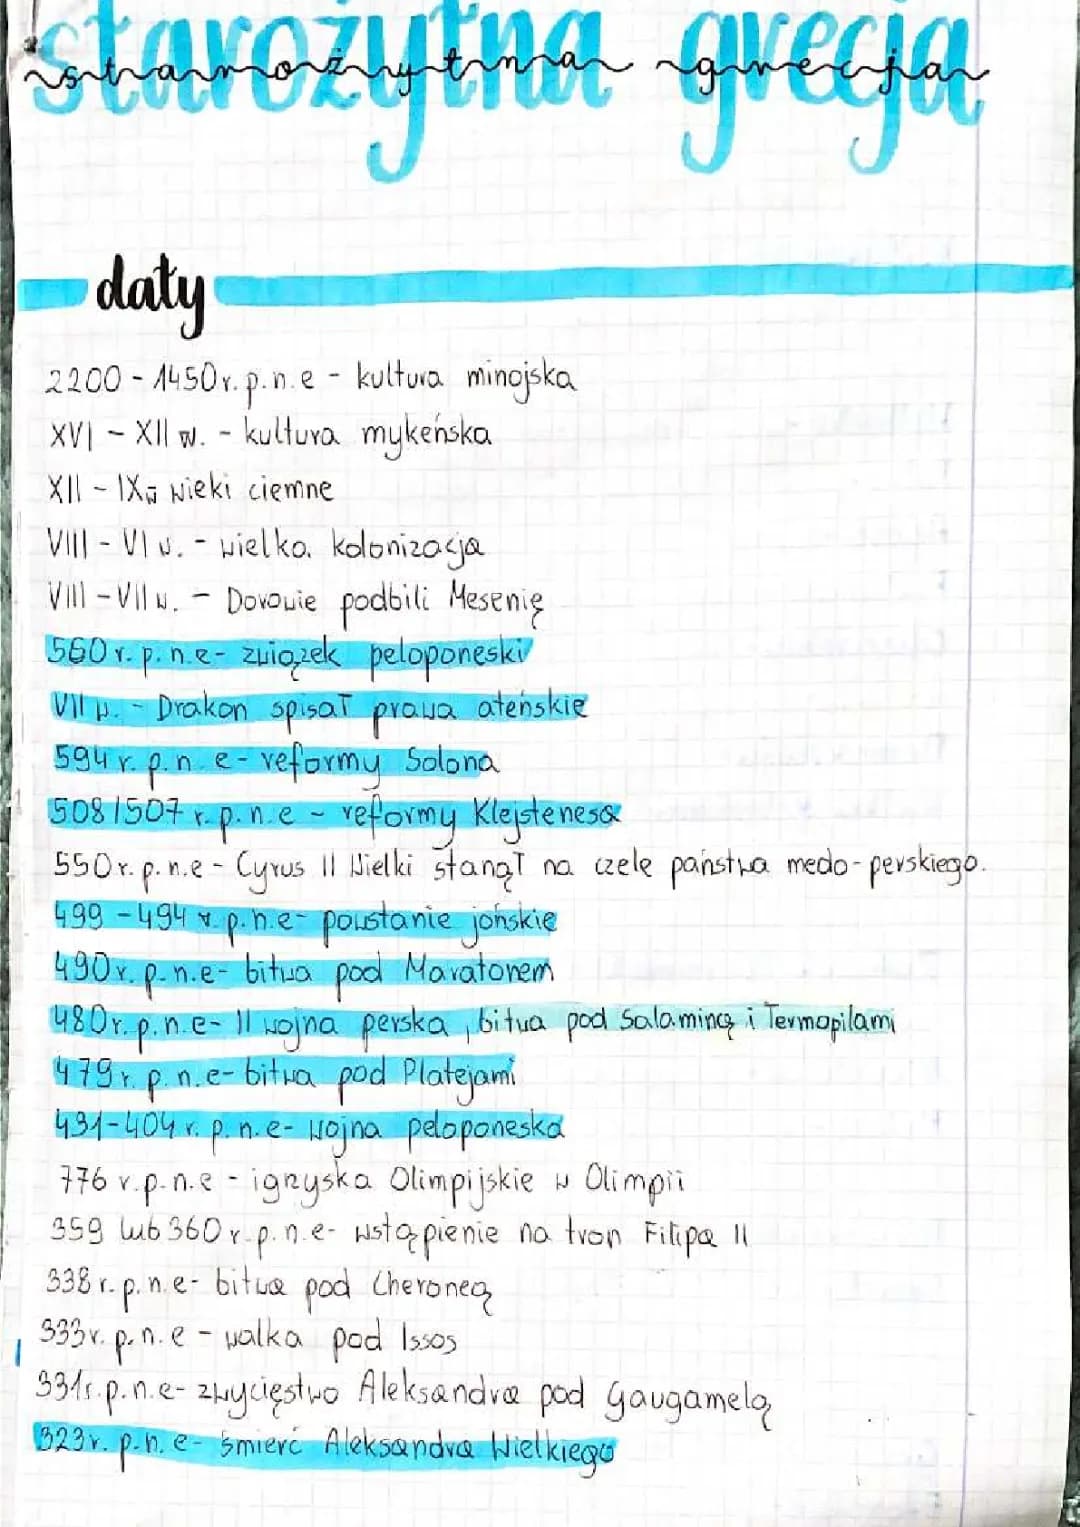 starożytna grecja
starożytna grecja
daty
2200 - 1450r. p.n.e - kultura minojska
XVI - XII w. - kultura mykeńska
XII - IXw wieki ciemne
VIII - VI w. - wielka kolonizacja
VIII - VII w. - Dorowie podbili Mesenię
560 r. p.n.e - związek peloponeski
VII w. - Drakon spisał prawa ateńskie
594 r. p.n.e - reformy Solona
508/507 r. p.n.e - reformy Klejstenesa
550r. p.n.e - Cyrus II Wielki stanął na czele państwa medo-perskiego.
499 - 494 r. p.n.e - powstanie jońskie
490r. p.n.e - bitwa pod Maratonem
480r. p.n.e - II wojna perska, bitwa pod Salaminą i Termopilami
479 r. p.n.e - bitwa pod Platejami
431-404 r. p.n.e - wojna peloponeska
776 r.p.n.e - igrzyska Olimpijskie w Olimpii
359 lub 360 r. p.n.e - wstąpienie na tron Filipa II
338 r. p.n.e - bitwa pod Cheroneą
333r. p.n.e - walka pod Issos
331r. p.n.e - zwycięstwo Aleksandra pod Gaugamelą
323r. p.n.e - śmierć Aleksandra Wielkiego